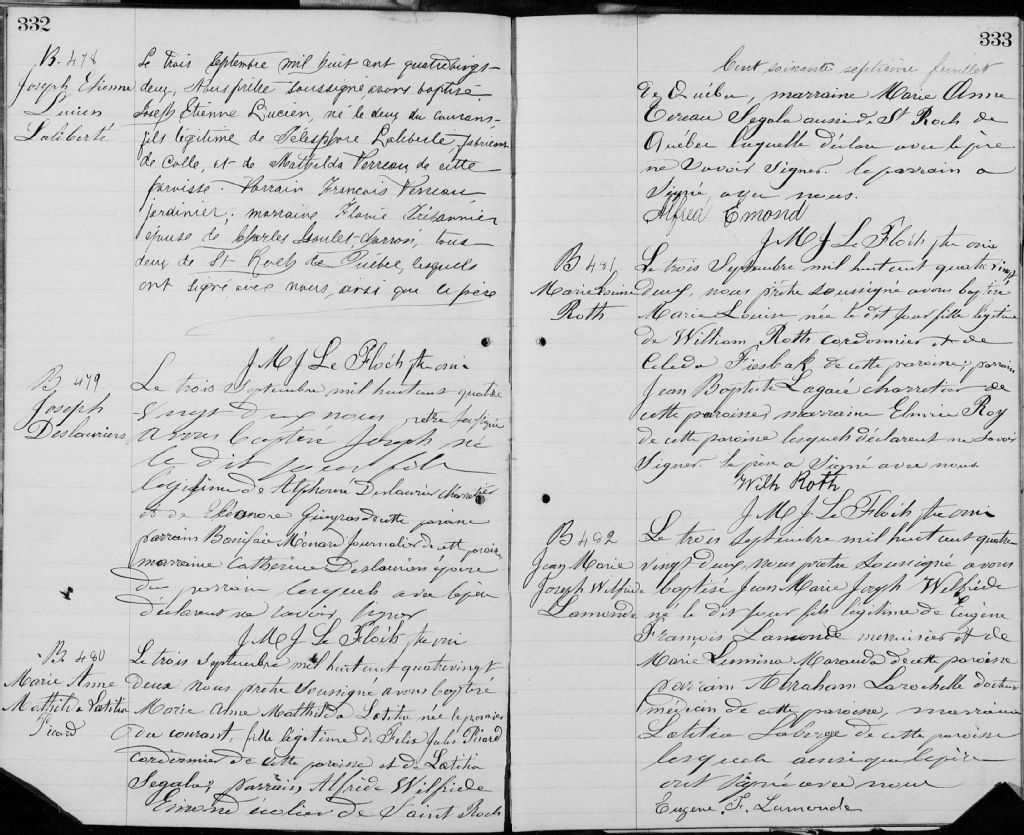 332
B. 478
Joseph Etienne
Lucien
Laliberté
Le trois Septembre mil huit cent quatrevingt-
deux, Nous prêtre soussigné avons baptisé
Joseph Etienne Lucien, né le deux du courant
fils légitime de Télesphore Laliberté, fabricant
de Colle, et de Mathilda Verreau de cette
paroisse. Parrain François Verreau
jardinier; marraine Flavie
épouse de Charles Goulet, tous
deux de St Roch de Québec, lesquels
ont signé avec nous, ainsi que le père
J M J Le Floch ptre omi
B 479
Joseph
Deslauriers
Le trois Septembre mil huit cent quatre
vingt deux nous prêtre soussigné
avons baptisé Joseph né
le dit jour fils
légitime de Alphonse Deslauriers charretier
et de Eléonore Gingras de cette paroisse
parrain Boniface Ménard Journalier de cette paroisse
marraine Catherine Deslauriers épouse
du parrain lesquels avec le père
déclarent ne savoir signer
J M J Le Floch ptre omi
B. 480
Marie Anne
Mathilda Lætitia
Picard
Le trois Septembre mil huit cent quatrevingt
deux nous prêtre soussigné avons baptisé
Marie Anne Mathilda Lætitia née le premier
du courant, fille légitime de Felix Jules Picard
cordonnier de cette paroisse et de Lætitia
Segala; parrain Alfride Wilfride
Emond écolier de Saint Roch
333
Cent soixante septième feuillet
de Québec, marraine Marie Anne
Segala aussi de St Roch de
Québec laquelle déclare avec le père
ne savoir signer. le parrain a
signé avec nous.
Alfred Emond
J M J Le Floch ptre omi
B 481
Marie Louise
Roth
Le trois Septembre mil huit cent quatre vingt
deux, nous prêtre soussigné avons baptisé
Marie Louise née le dit jour fille légitime
de William Roth cordonnier et de
de cette paroisse; parrain
Jean Baptiste Lagacé charretier de
cette paroisse, marraine Elmire Roy
de cette paroisse lesquels déclarent ne savoir
signer. le père a signé avec nous.
Wilh Roth
J M J Le Floch ptre omi
B 482
Jean Marie
Joseph Wilfride
Lamonde
Le trois Septembre mil huit cent quatre-
vingt deux, nous prêtre soussigné avons
baptisé Jean Marie Joseph Wilfride
né le dit jour fils légitime de Eugène
François Lamonde menuisier et de
Marie Lumina Marauda de cette paroisse
parrain Abraham Larochelle docteur
médecin de cette paroisse, marraine
Lætitia Laberge de cette paroisse
lesquels ainsi que le père
ont signé avec nous
Eugène F. Lamonde